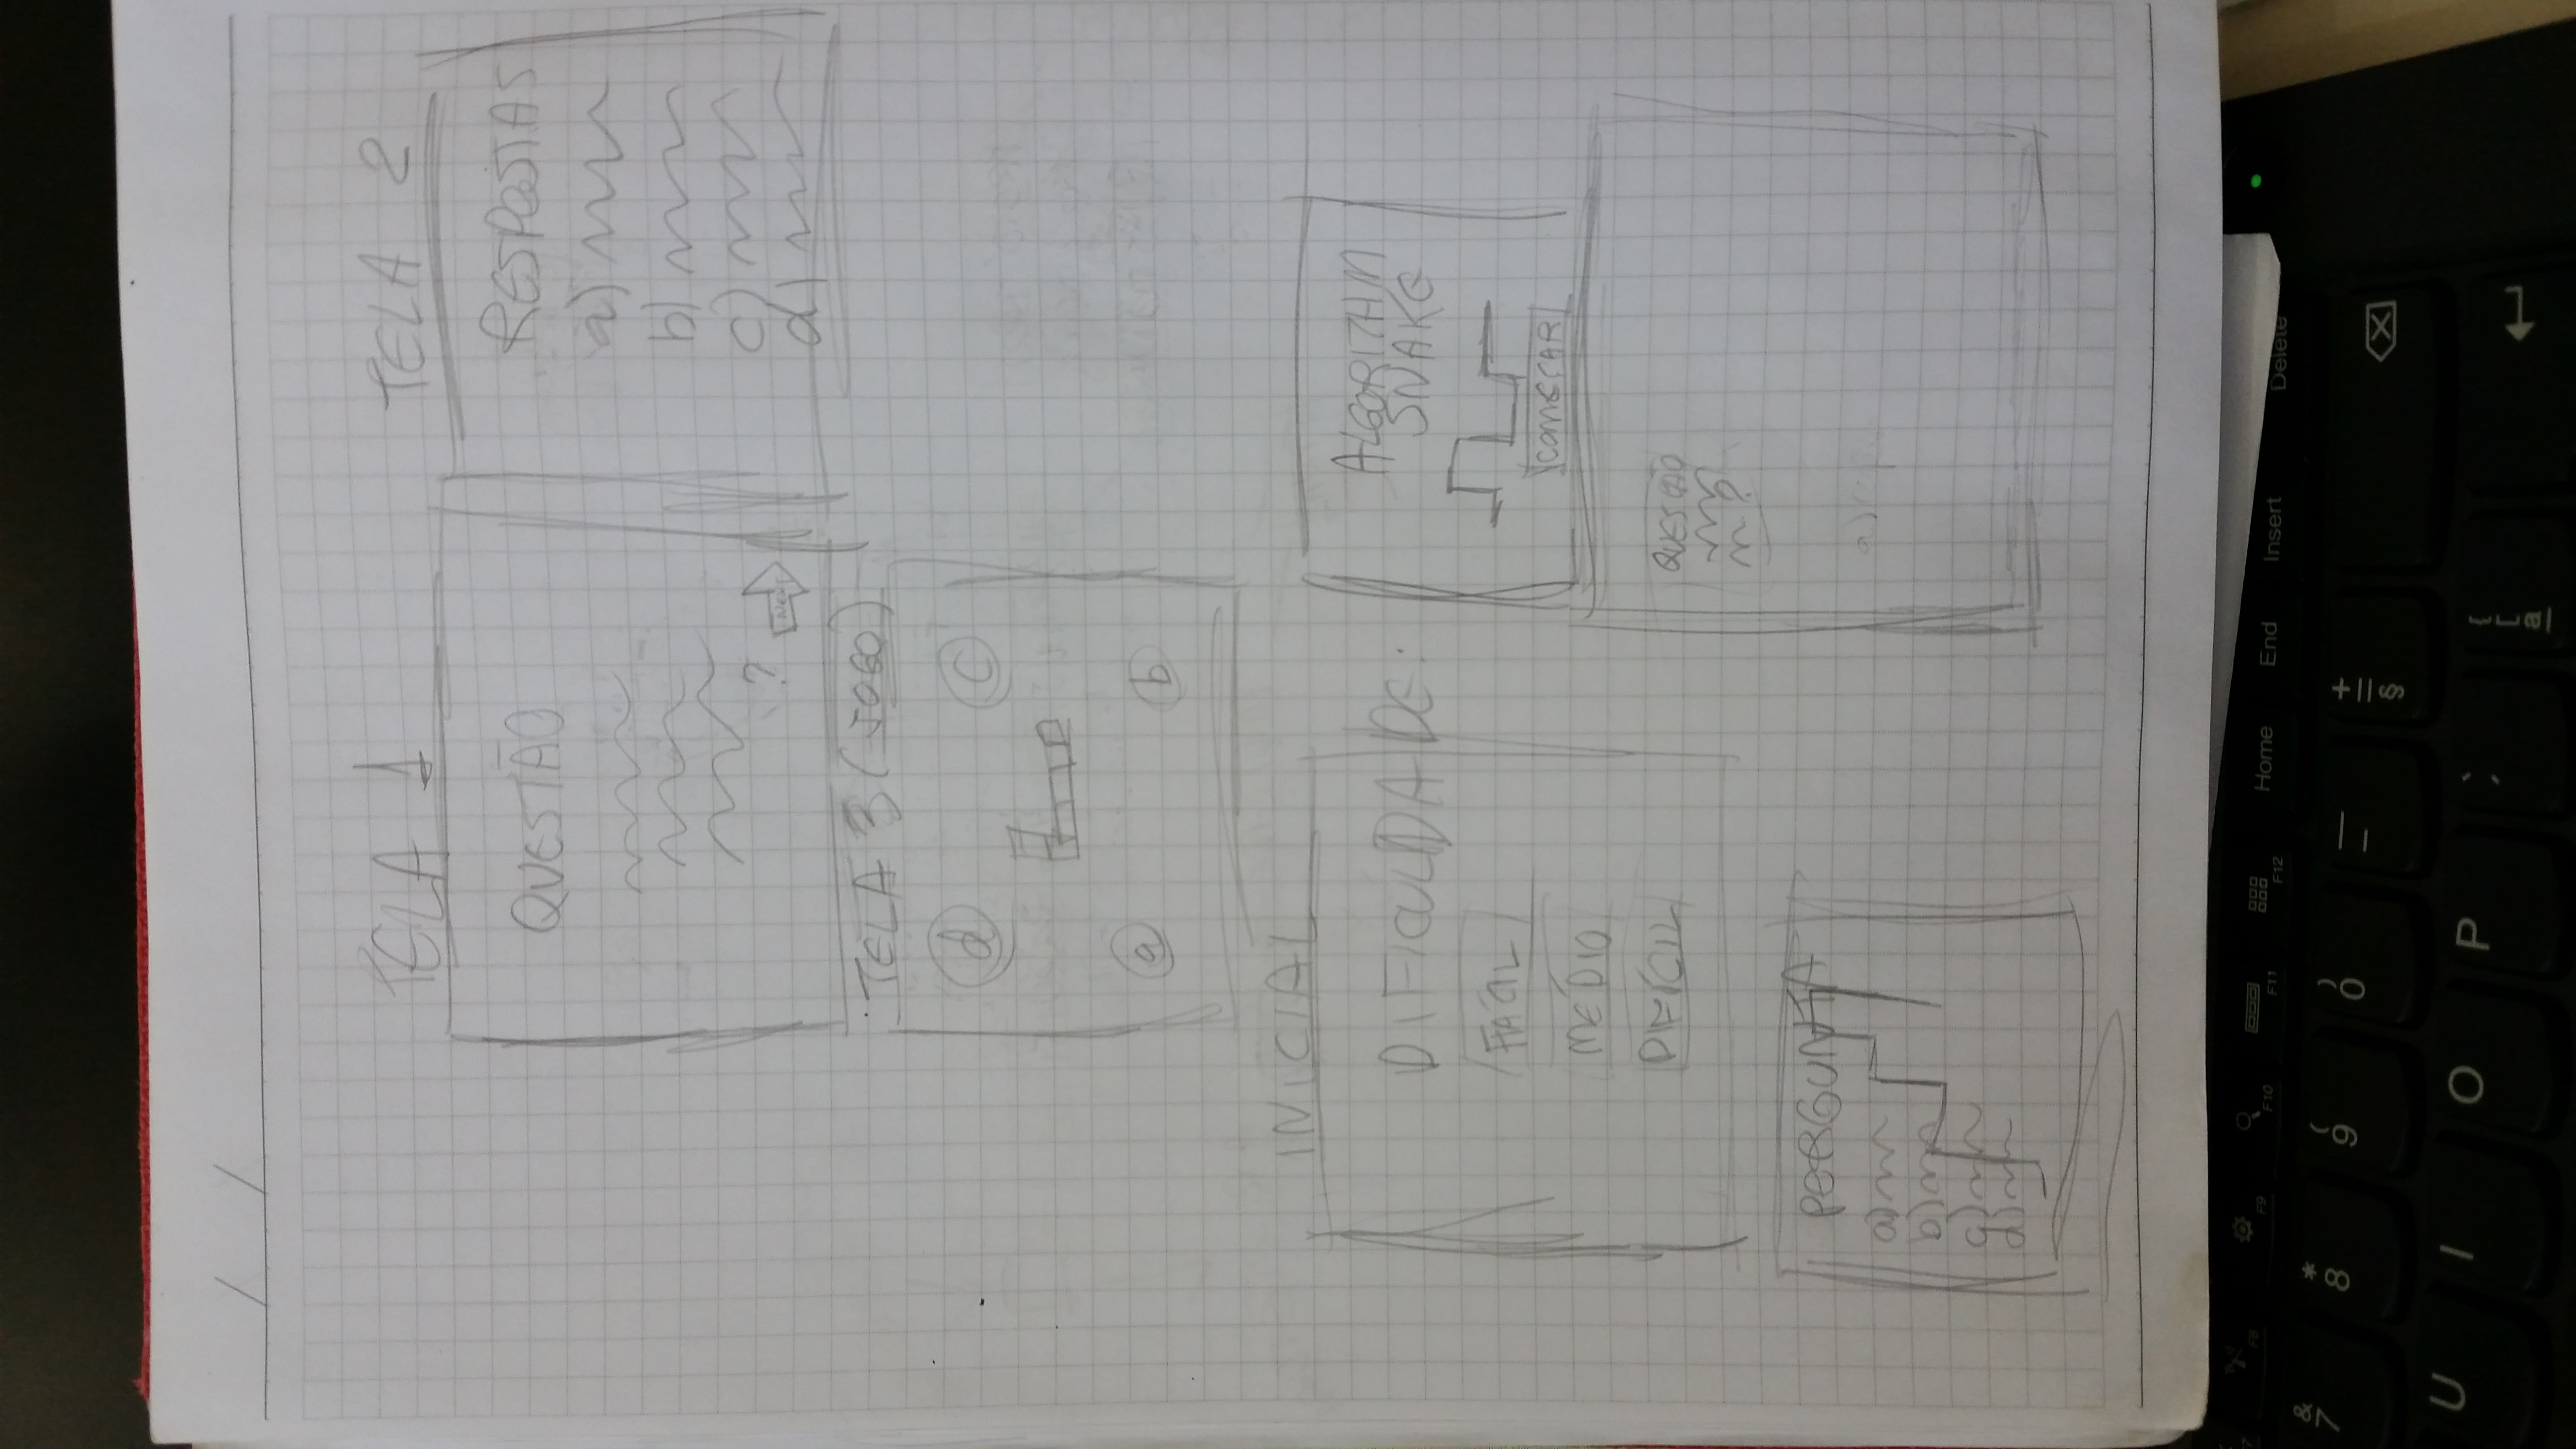 / /
TELA 1
TELA 2
QUESTÃO
?
NEXT
RESPOSTAS
a)
b)
c)
d)
TELA 3 (JOGO)
d
c
a
b
INICIAL
DIFICULDADE:
FÁCIL
MÉDIO
DIFÍCIL
ALGORITHM
SNAKE
COMEÇAR
QUESTÃO
?
a)
PERGUNTA
a)
b)
c)
d)
F8
F9
F10
F11
F12
Home
End
Insert
Delete
& 7
* 8
( 9
) 0
— –
+ = §
U
I
O
P
{ [ a